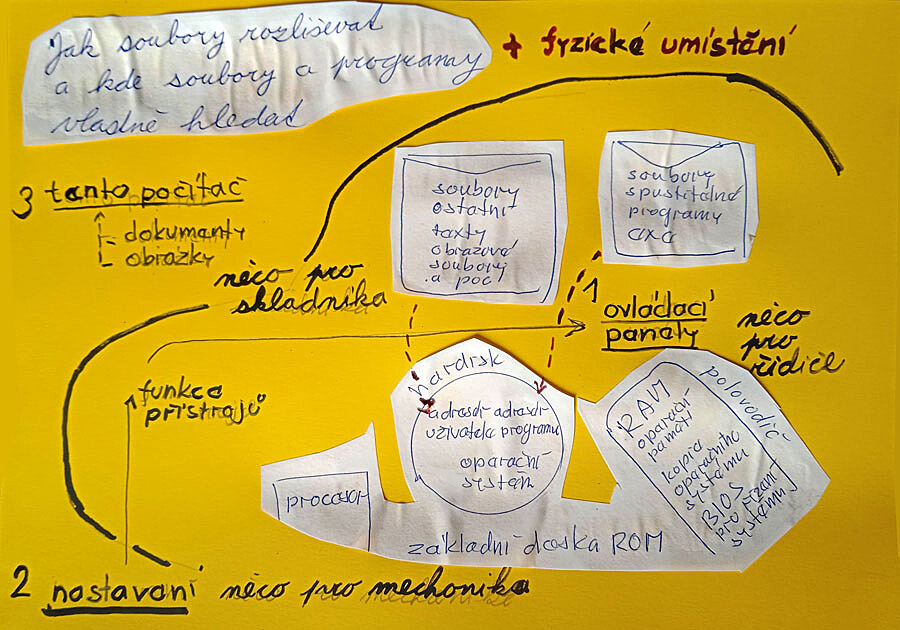 Jak soubory rozlišovat
a kde soubory a programy
vlastně hledat
+ fyzické umístění
3 tento počítač
dokumenty
obrázky
něco pro
skladníka
soubory
ostatní
texty
obrazové
soubory
a pod
soubory
spustitelné
programy
exe
1 ovládací
panely
něco
pro
řidiče
funkce
přístrojů
hardisk
adresář adresář
uživatele programu
operační
systém
procesor
základní deska ROM
RAM
operační
paměť
kopie
operačního
systému
BIOS
pro řízení
systému
polovodič
2 nastavení něco pro mechanika